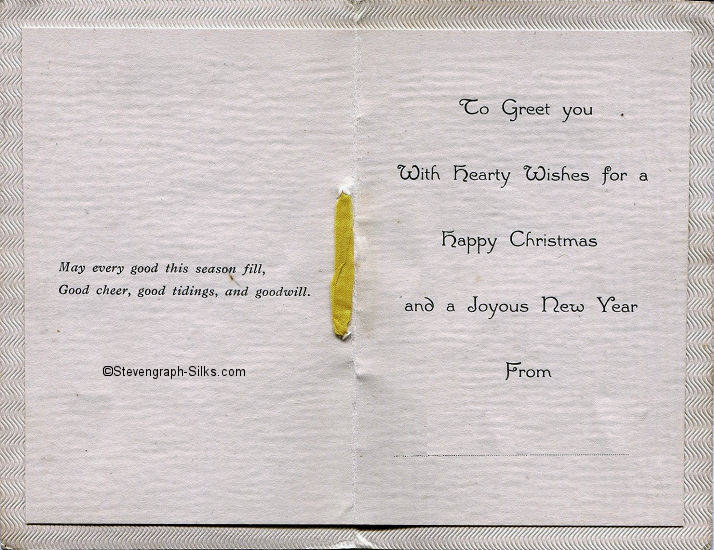 May every good this season fill,
Good cheer, good tidings, and goodwill.
©Stevengraph-Silks.com
To Greet you
With Hearty Wishes for a
Happy Christmas
and a Joyous New Year
From